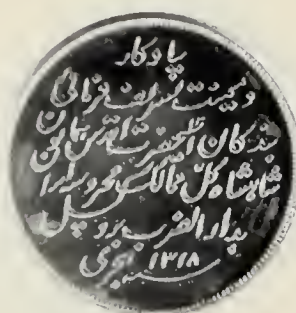 یادکار
و میمنت تشریف فرمائی
بندکان اعلیحضرت اقدس همایون
شاهنشاه کل ممالک محروسه ایران
بدار الضرب بروسل
سنه ۱۳۱۸ هجری